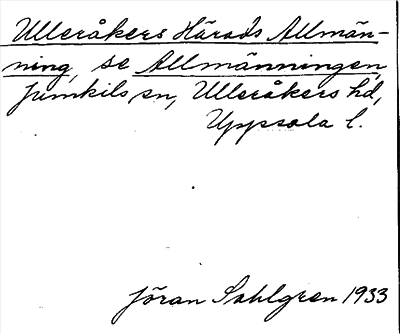 Ulleråkers Härads Allmän-
ning, se Allmänningen,
Jumkils sn, Ulleråkers hd,
Uppsala l.
Jöran Sahlgren 1933